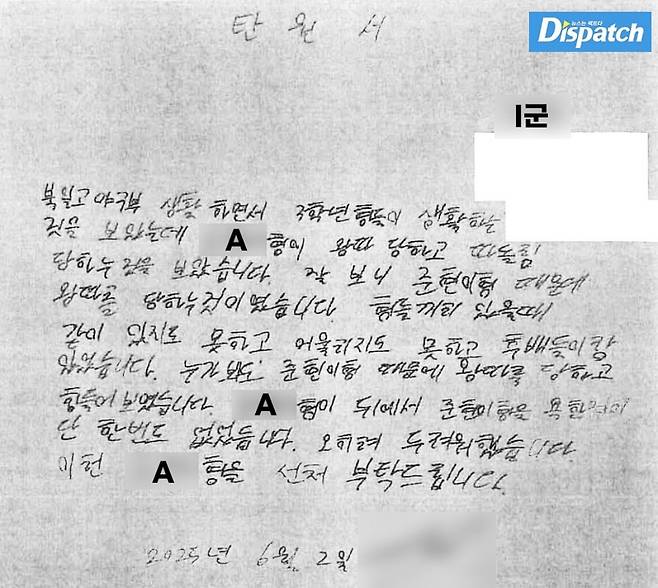 탄원서
뉴스는 팩트다
Dispatch
I군
북일고야구부 생활 하면서 3학년 형들이 생활하는
것을 보았는데 A 형이 왕따 당하고 따돌림
당하는 것을 보았습니다. 잘 보니 준현이형 때문에
왕따를 당하는것이였습니다 형들끼리 있을때
같이 있지도 못하고 어울리지도 못하고 후배들이랑
있었습니다. 누가봐도 준현이형 때문에 왕따를 당하고
힘들어보였습니다. A 형이 뒤에서 준현이형을 욕한적이
단 한번도 없었습니다. 오히려 두려워했습니다.
이런 A 형을 선처 부탁드립니다.
2025년 6월 2일